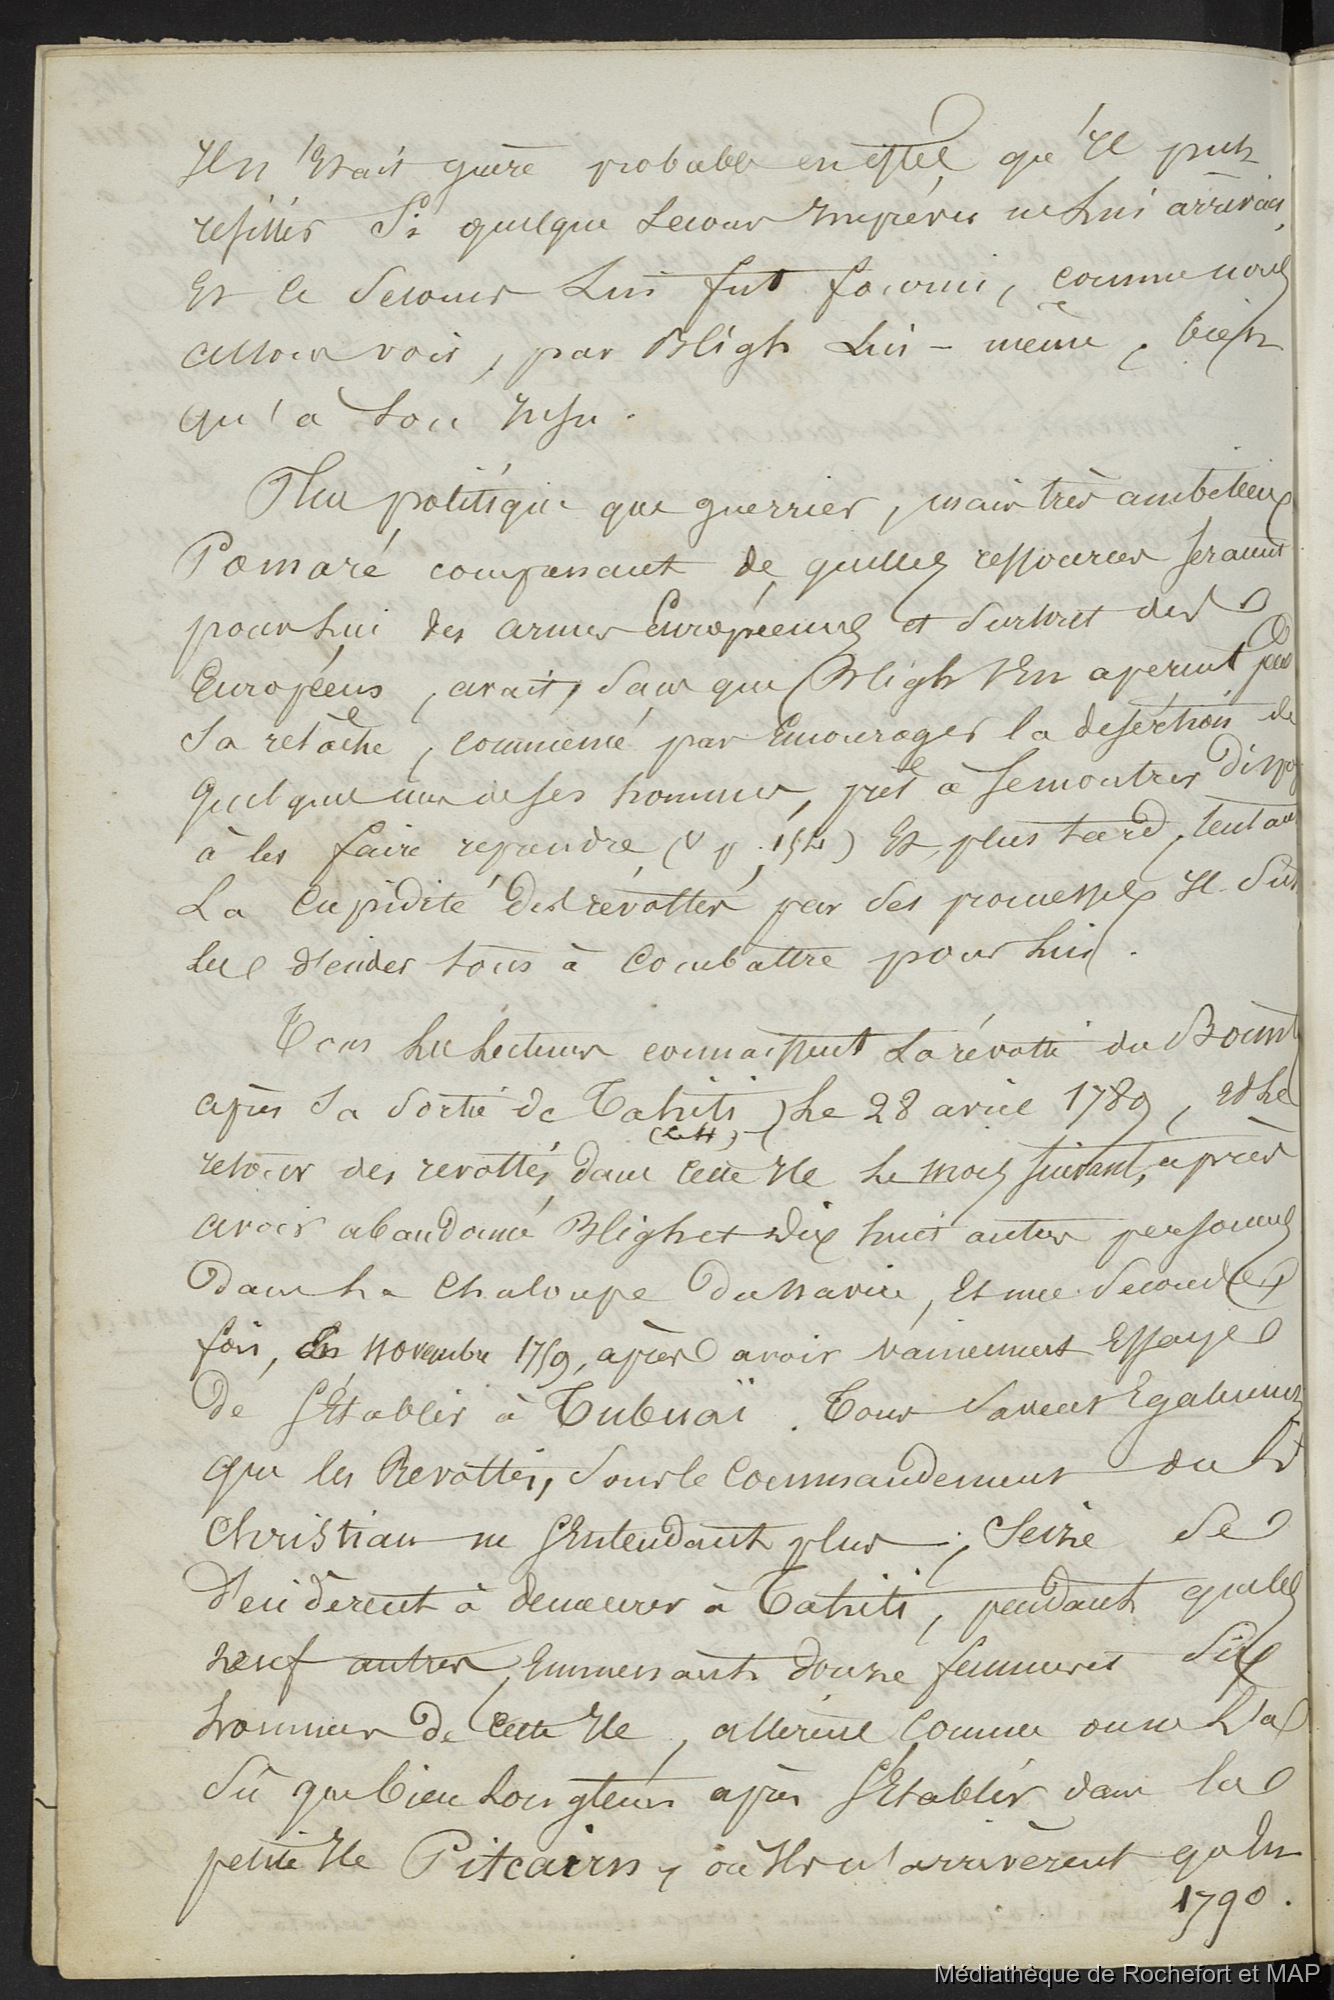 Il n'était guère probable en effet qu'Il put
résister Si quelque Secour Imprévu ne Lui arrivait,
Et ce Secours Lui fut fourni, comme nous
allons voir, par Bligh Lui-même, bien
qu'à Son Insu.
Plus politique que guerrier, mais très ambitieux
Pomaré comprenant de quelles ressources seraient
pour Lui des armes Européennes et Surtout des
Européens, avait, Sans que Bligh s'En aperçut, par
Sa relâche, commencé par Encourager la désertion de
quelques uns de ses hommes, prêt à se montrer Dispo
à les faire reprendre (v p. 154) Et, plus tard, tentant
La Cupidité des révoltés par des promesses Il Sut
les décider tous à Combattre pour Lui.
Tous les Lecteurs connaissent La révolte du Bount
après Sa Sortie de Tahiti, Le 28 avril 1789, et Le
retour des revoltés dans cette Ile le mois suivant, après
avoir abandonné Bligh et dix huit autres personnes
Dans La Chaloupe Du Navire, Et une Seconde
fois, En Novembre 1789, après avoir vainement Essayé
De s'Etablir à Tubuaï. Tous Savent Egalement
que les Revoltés, Sous le Commandement du Lt
Christian ne s'Entendant plus, Seize Se
Décidèrent à demeurer à Tahiti, pendant que les
neuf autres, Emmenant douze femmes et Six
hommes De Cette Ile, allèrent Comme on ne L'a
Sû que bien Longtems après s'Etablir dans la
petite Ile Pitcairn, où Ils n'arrivèrent qu'En
1790.
Médiathèque de Rochefort et MAP